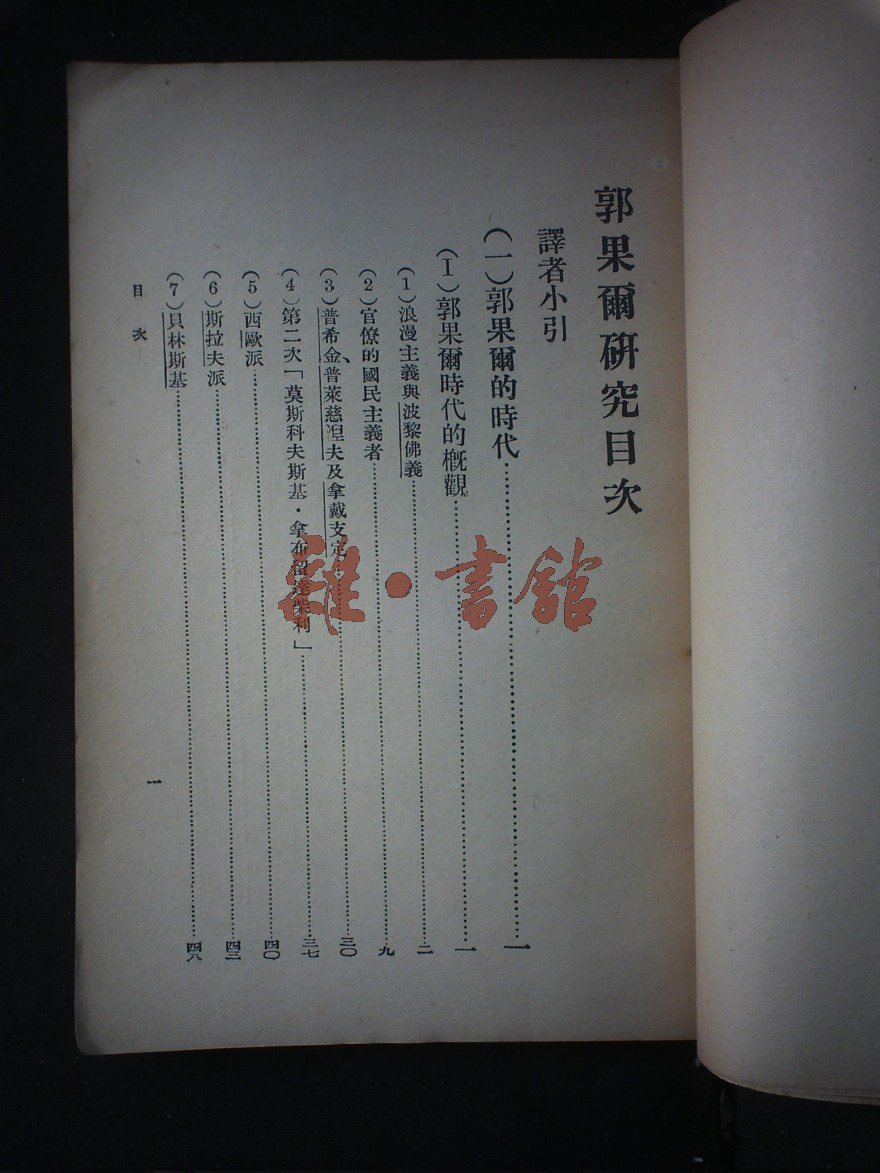 郭果爾硏究目次
譯者小引
(一)郭果爾的時代……………………一
(I)郭果爾時代的槪觀……………………一
(1)浪漫主義與波黎佛義……………………二
(2)官僚的國民主義者……………………九
(3)普希金、普萊慈涅夫及拿戴支定……………………三〇
(4)第二次「莫斯科夫斯基·拿布留達柴利」……………………三七
(5)西歐派……………………四〇
(6)斯拉夫派……………………四三
(7)貝林斯基……………………四八
目次
一
雜·書館